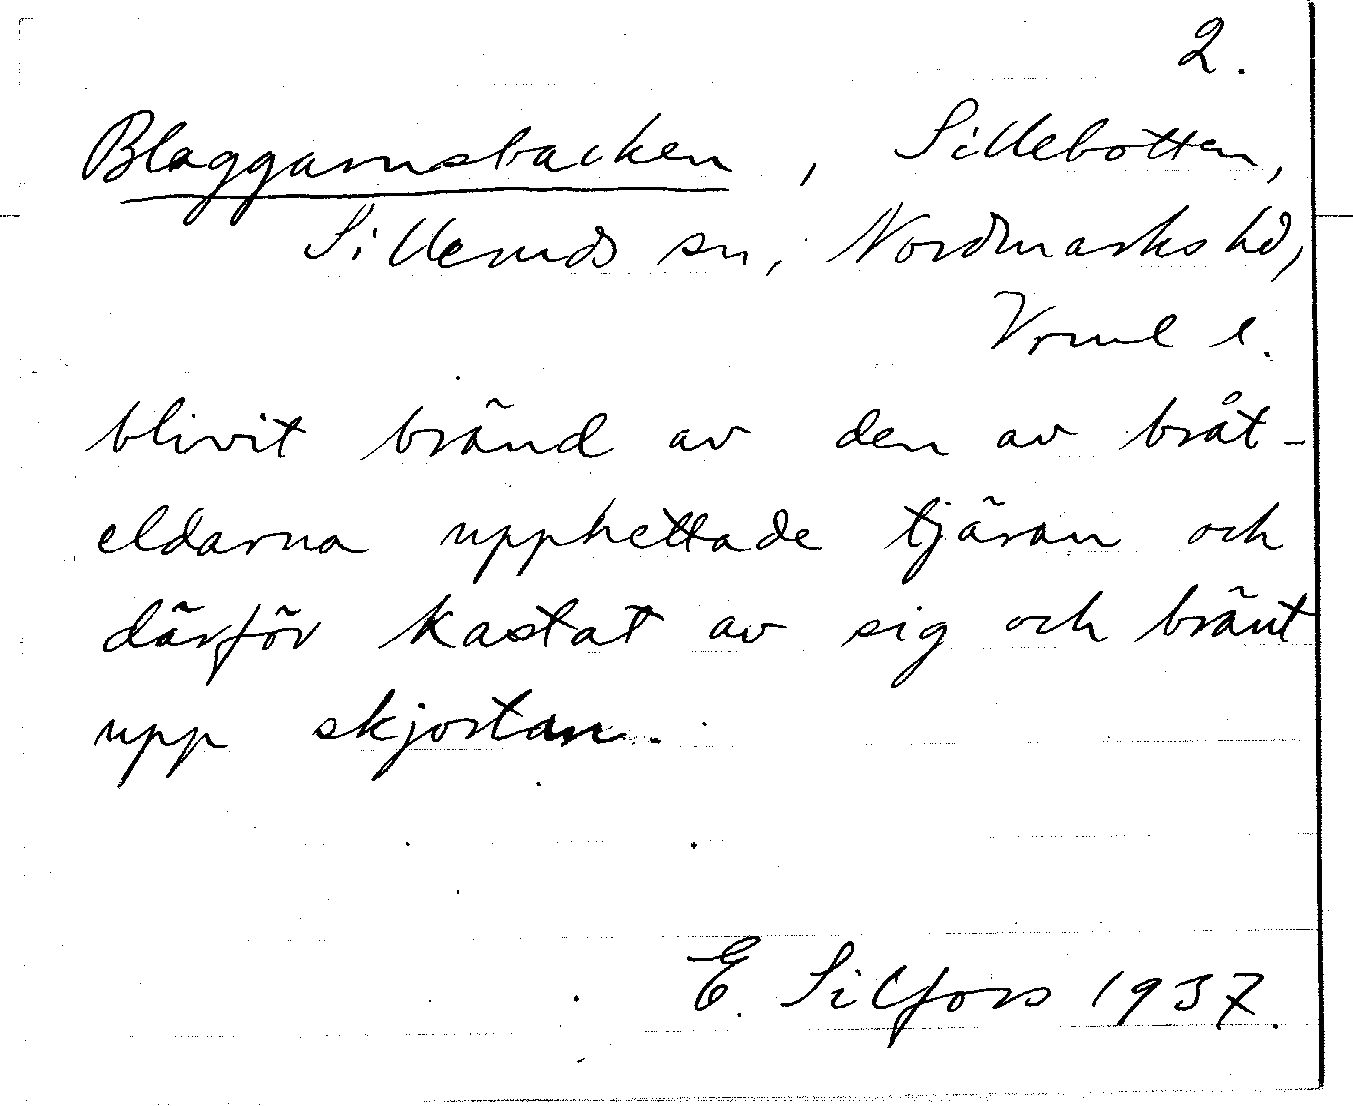 2.
Blaggarnsbacken, Sillebotten,
Silleruds sn, Nordmarks hd,
Vrml l.
blivit bränd av den av bråt-
eldarna upphettade tjäran och
därför kastat av sig och bränt
upp skjortan.
E. Silfors 1937.